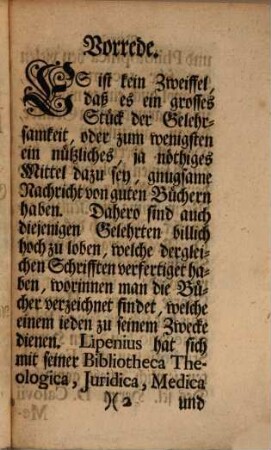 Vorrede.
ES ist kein Zweiffel,
daß es ein grosses
Stück der Gelehr-
samkeit, oder zum wenigsten
ein nützliches, ja nöthiges
Mittel dazu sey, gnugsame
Nachricht von guten Büchern
haben. Dahero sind auch
diejenigen Gelehrten billich
hoch zu loben, welche derglei-
chen Schrifften verfertiget ha-
ben, worinnen man die Bü-
cher verzeichnet findet, welche
einem ieden zu seinem Zwecke
dienen. Lipenius hat sich
mit seiner Bibliotheca The-
ologica, Juridica, Medica
)( 2 und